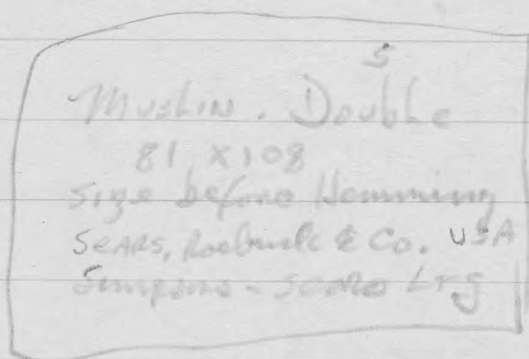 5
Muslin. Double
81 x 108
Size before Hemming
SEARS, Roebuck & Co. USA
Simpsons - SEARS Ltd